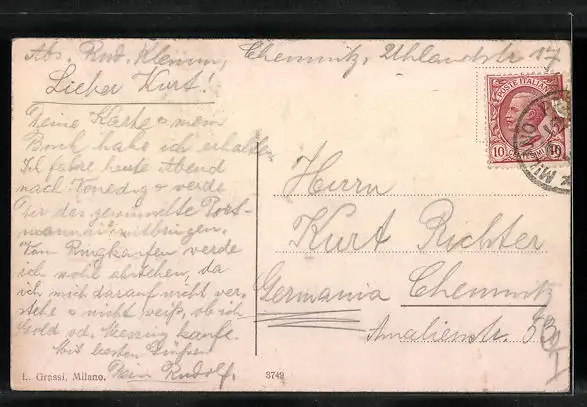 Abs. Rud. Klemm, Chemnitz, Uhlandstr 17
Lieber Kurt!
Deine Karte u mein
Buch habe ich erhalten.
Ich fahre heute Abend
nach Venedig u werde
Dir das gewünschte Port-
monnai mitbringen.
Vom Ring kaufen werde
ich wohl absehen, da
ich mich darauf nicht ver-
stehe u nicht weiß, ob ich
Gold od. Messing kaufe.
Mit besten Grüßen
Dein Rudolf.
POSTE ITALIANE
10 10
MILANO
Herrn
Kurt Richter
Germania Chemnitz
Amalienstr. 53
I
L. Grassi, Milano. 3749